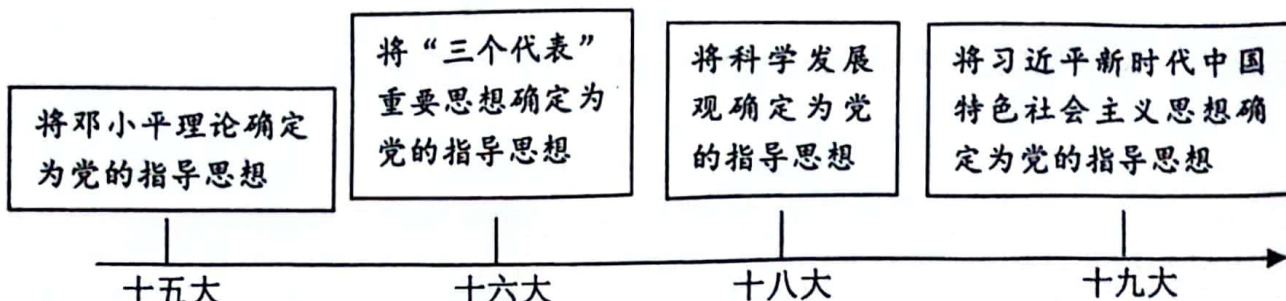 将邓小平理论确定
为党的指导思想
将“三个代表”
重要思想确定为
党的指导思想
将科学发展
观确定为党
的指导思想
将习近平新时代中国
特色社会主义思想确
定为党的指导思想
十五大
十六大
十八大
十九大